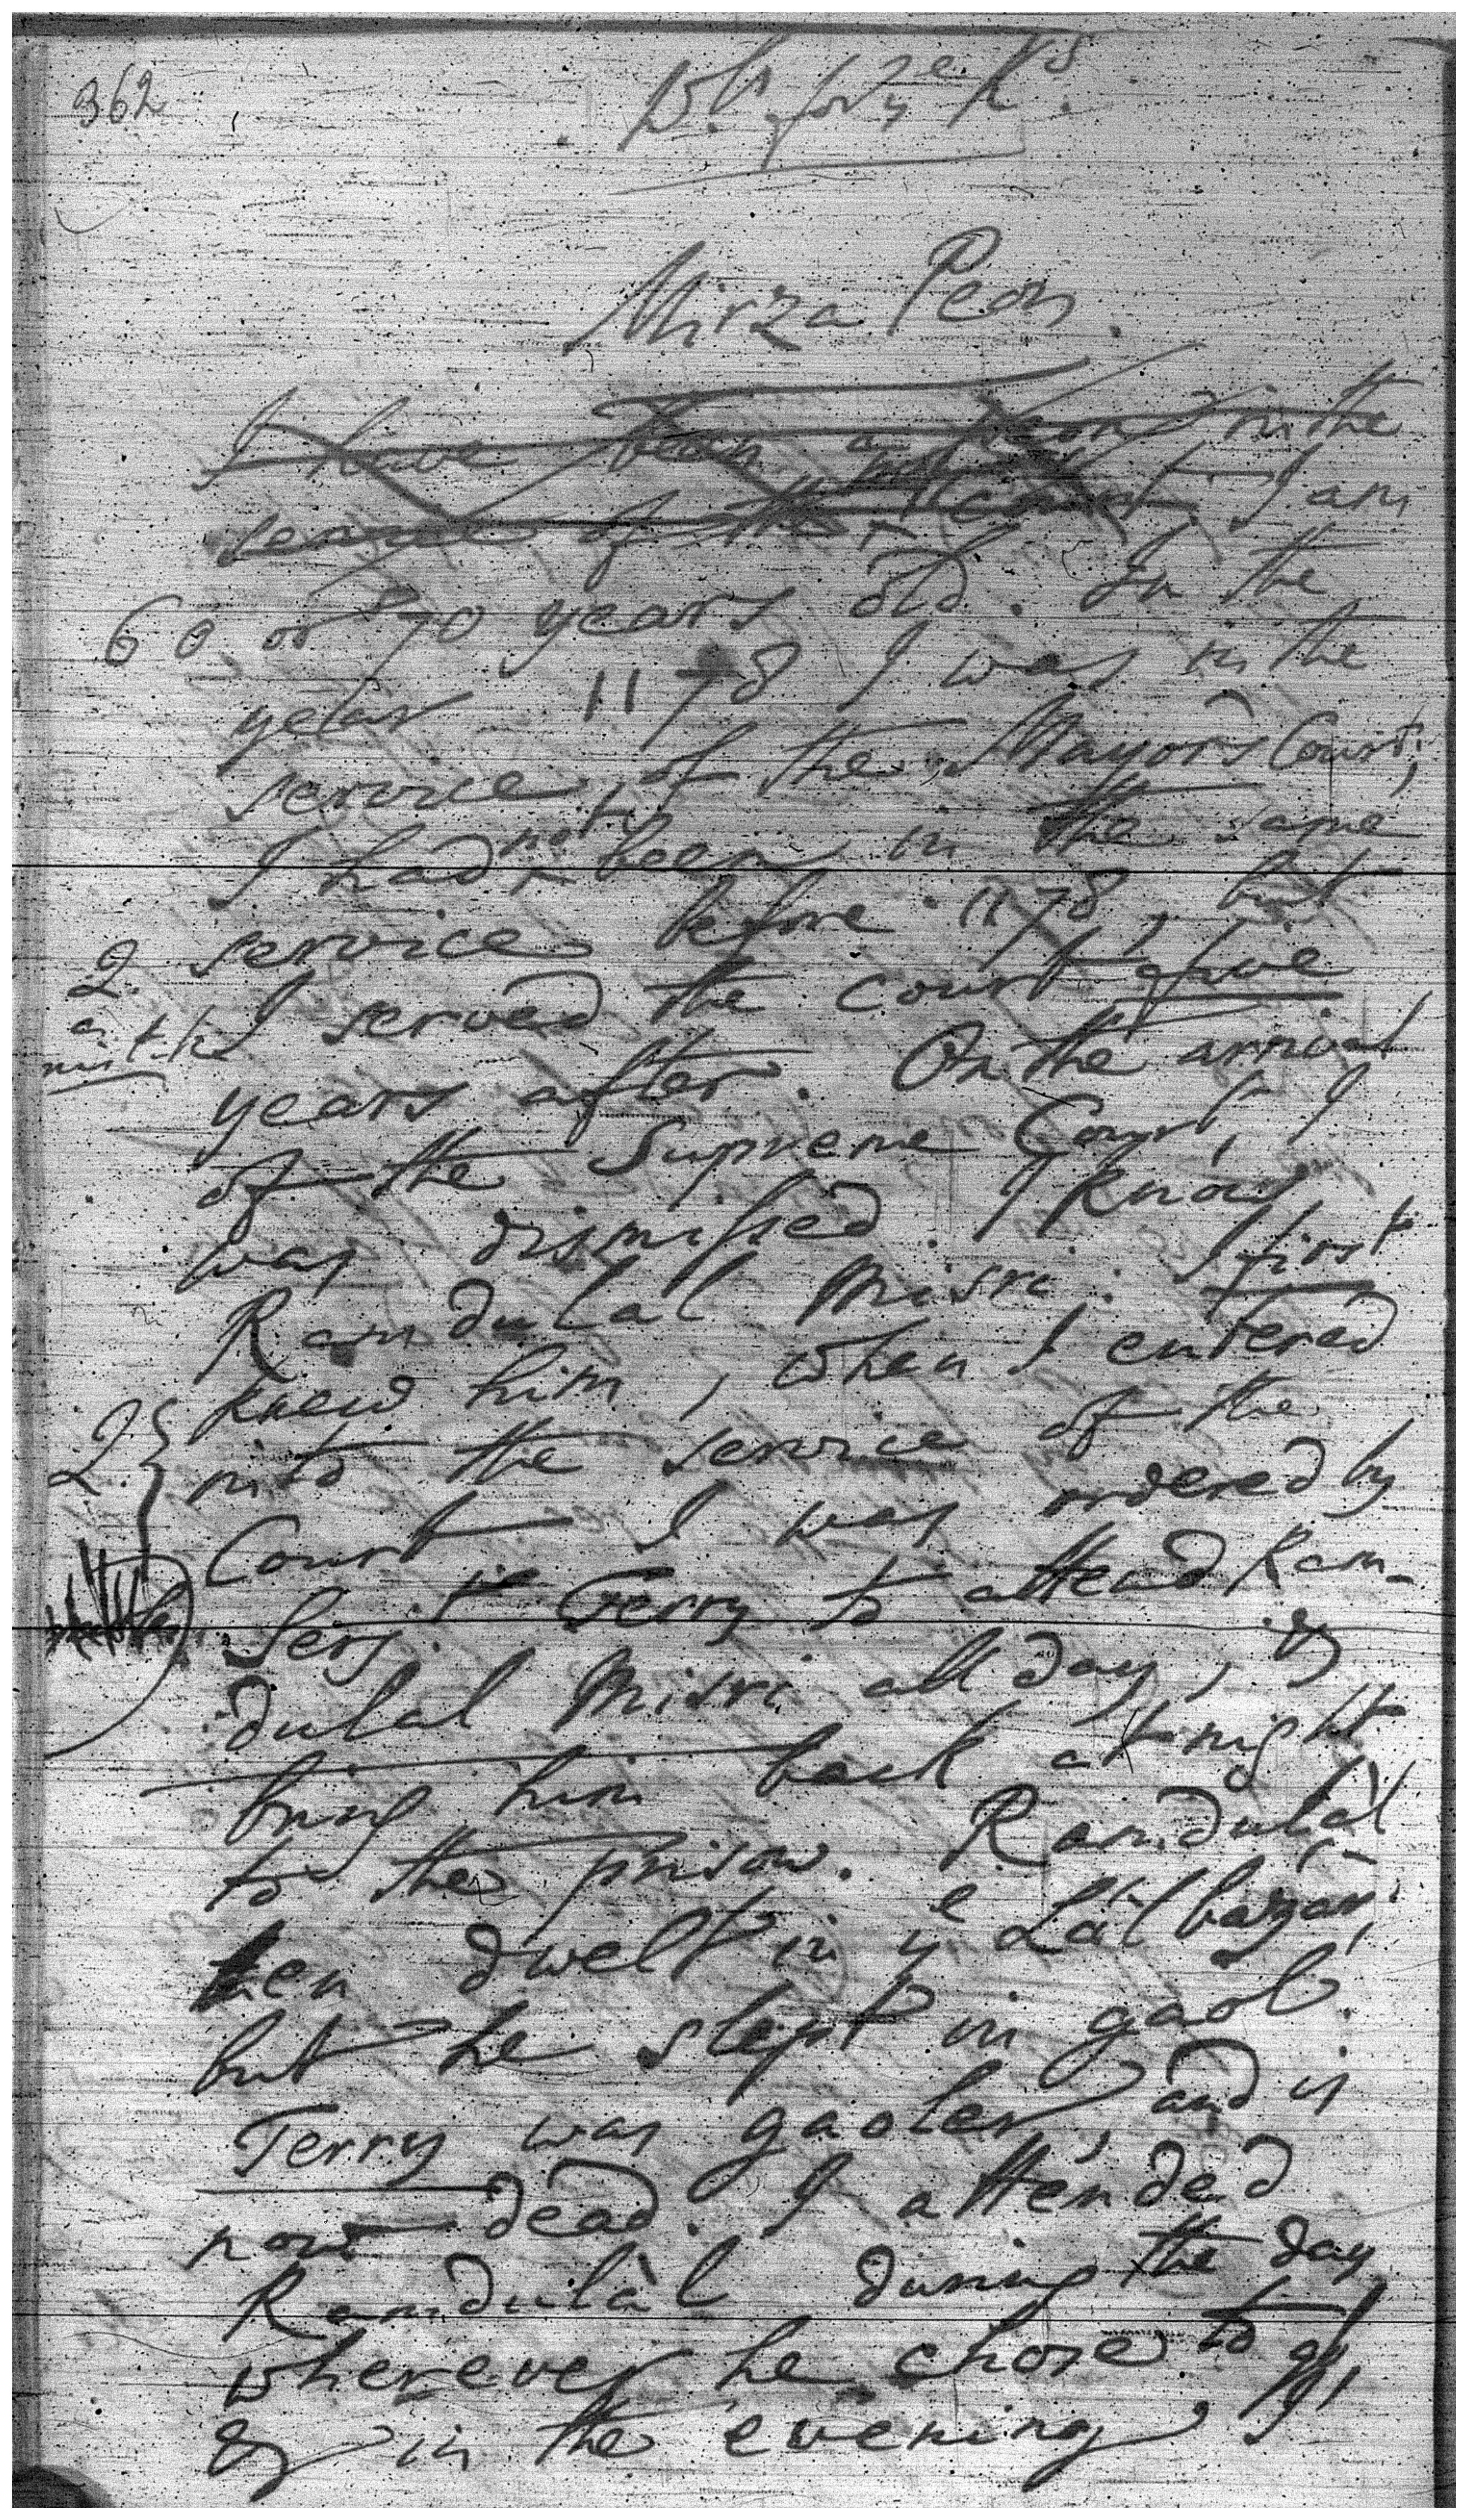 362
Mirza Peon.
I have been a Peon in the
service of the Court. I am
60 or 70 years old. In the
year 1178 I was in the
service of the Mayor's Court;
I had not been in the same
service before 1178, but
2. I served the court five
years after. On the arrival
of the Supreme Court, I
was dismissed. I know
Ramdulal Misri. I first
knew him, when I entered
2. into the service of the
Court. I was ordered by
Serj.t Terry to attend Ram-
dulal Misri all day, &
bring him back at night
to the prison. Ramdulàl
then dwelt in ye Làl bazar,
but he slept in gaol.
Terry was gaoler, and is
now dead. I attended
Ramdulàl during the day
wherever he chose to go,
& in the evening I